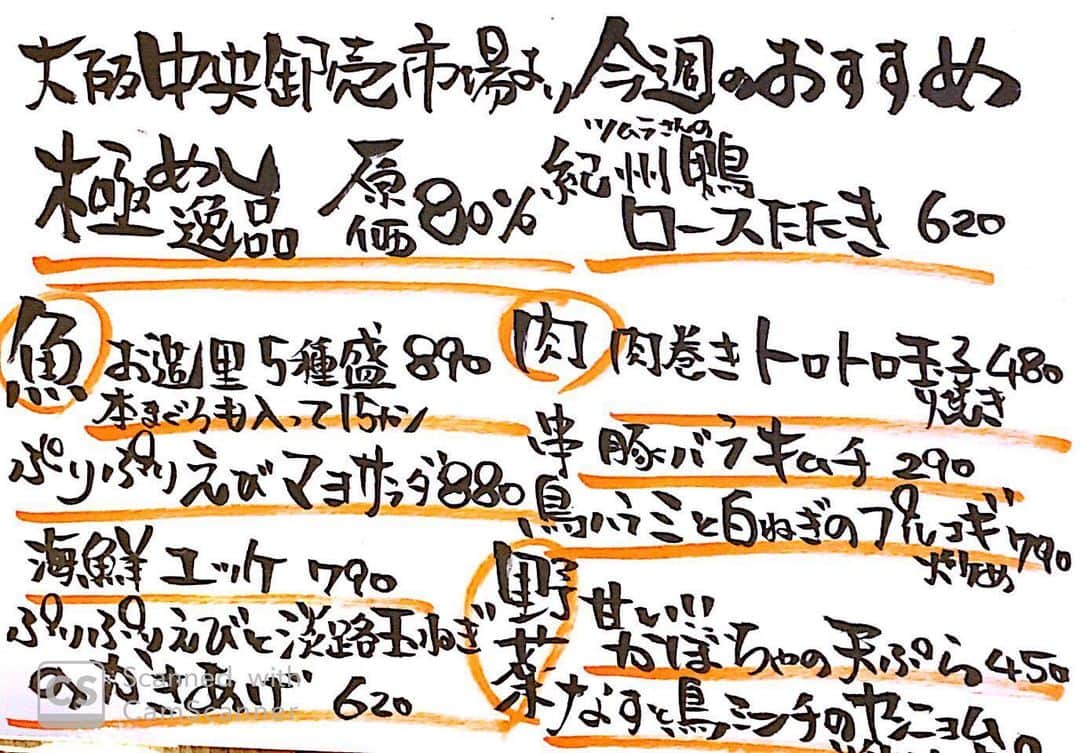 大阪中央卸売市場より今週のおすすめ
極めし逸品 原価80%
ツムラさんの
紀州鴨
ロースたたき 620
魚
お造里5種盛 890
本まぐろも入って15カン
ぷりぷりえびマヨサラダ 880
海鮮ユッケ 790
ぷりぷりえびと淡路玉ねぎ
のかきあげ 620
肉
肉巻きトロトロ玉子焼き 480
串 豚バラキムチ 290
鳥ハラミと白ねぎのプルコギ炒め 790
野菜
甘い!!
かぼちゃの天ぷら 450
なすと鳥ミンチの
CS Scanned with
CamScanner